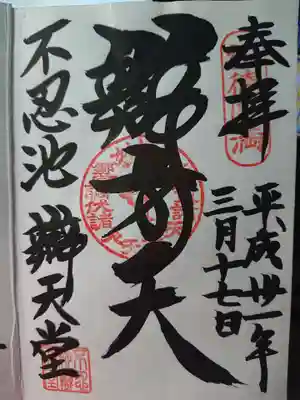 奉拝
平成丗一年
三月十七日
辨才天
不忍池 辨天堂